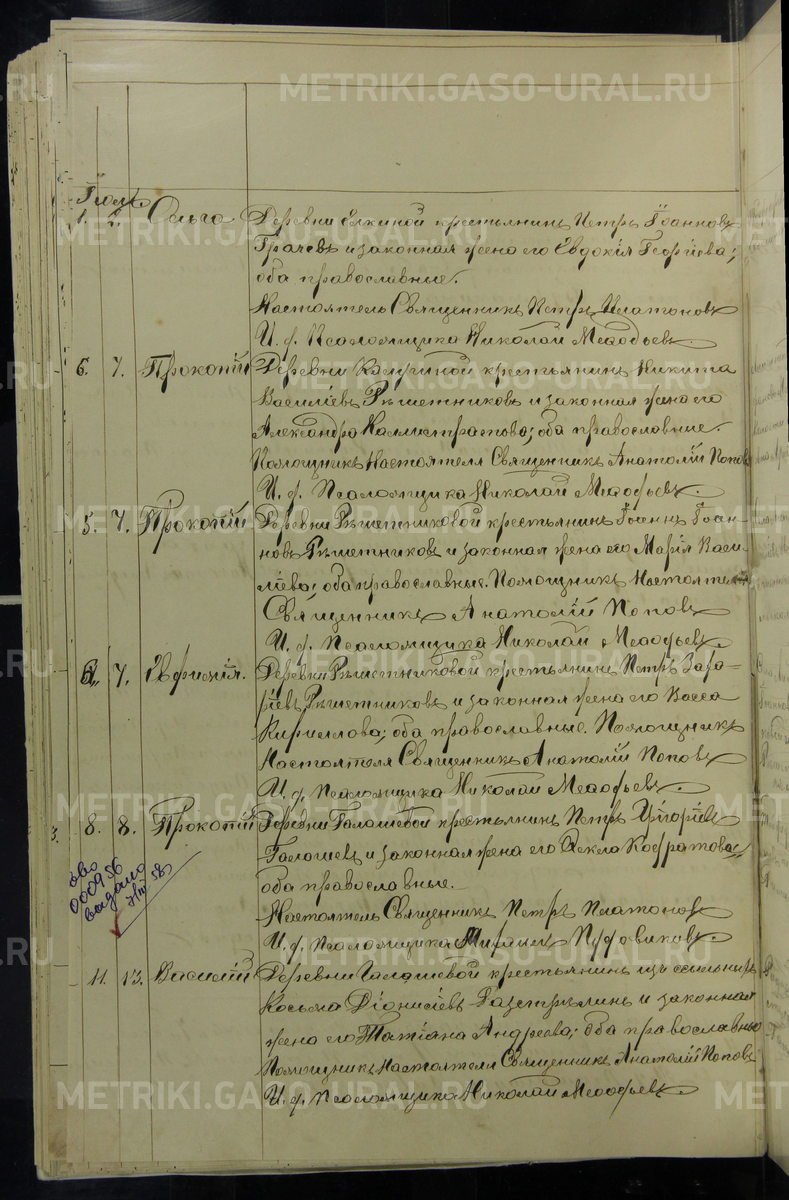 METRIKI.GASO-URAL.RU
Іюль
1. 2. Ольга Деревни Елкиной крестьянинъ Петръ Іоанновъ
Грачевъ и законная жена его Евдокія Георгіева;
оба православные.
Настоятель Священникъ Петръ Платоновъ
И. д. Псаломщика Николай Меѳодьевъ.
6. 7. Прокопій Деревни крестьянинъ Никита
Василіевъ Рѣшетниковъ и законная жена его
Александра Каллистратова; оба православные.
Помощникъ Настоятеля Священникъ Анатолій Поповъ
И. д. Псаломщика Николай Меѳодьевъ.
5. 7. Прокопій Деревни Рѣшетниковой крестьянинъ Іоаннъ Іоан-
новъ Рѣшетниковъ и законная жена его Марія Васи-
ліева; оба православные. Помощникъ Настоятеля
Священникъ Анатолій Поповъ
И. д. Псаломщика Николай Меѳодьевъ.
7. Евфимія. Деревни Рѣшетниковой крестьянинъ Петръ Заха-
ріевъ Рѣшетниковъ и законная жена его Васса
Кириллова; оба православные. Помощникъ
Настоятеля Священникъ Анатолій Поповъ
И. д. Псаломщика Николай Меѳодьевъ.
8. 8. Прокопій Деревни Галашевой крестьянинъ Петръ Григоріевъ
Галашевъ и законная жена его Ѳекла Кодратова;
оба православные.
Настоятель Священникъ Петръ Платоновъ
И. д. Псаломщика
000956
выдано
11. 13. Василій Деревни Галашевой крестьянинъ изъ ссыльныхъ
Косьма Діонисіевъ и законная
жена его Татіана Андреева; оба православные
Помощникъ Настоятеля Священникъ Анатолій Поповъ
И. д. Псаломщика Николай Меѳодьевъ.